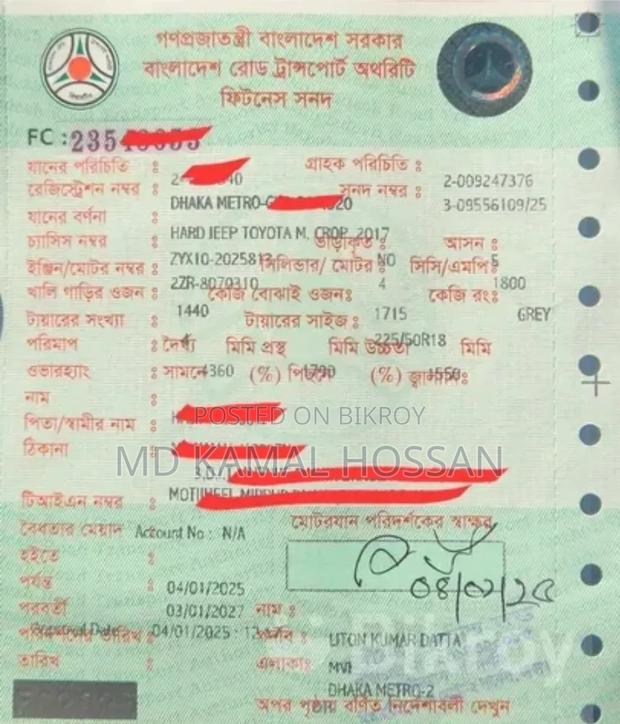 গণপ্রজাতন্ত্রী বাংলাদেশ সরকার
বাংলাদেশ রোড ট্রান্সপোর্ট অথরিটি
ফিটনেস সনদ
FC : 235
যানের পরিচিতি : গ্রাহক পরিচিতি : 2-009247376
রেজিস্ট্রেশন নম্বর : DHAKA METRO- সনদ নম্বর : 3-09556109/25
যানের বর্ণনা : HARD JEEP TOYOTA M. CROP. 2017
চ্যাসিস নম্বর : ZYX10-2025813 ভাড়াকৃত : NO আসন : 5
ইঞ্জিন/মোটর নম্বর : 2ZR-8070310 সিলিন্ডার/ মোটর : 4 সিসি/এমপি : 1800
খালি গাড়ির ওজন : 1440 কেজি বোঝাই ওজন : 1715 কেজি রং : GREY
টায়ারের সংখ্যা : 4 টায়ারের সাইজ : 225/50R18
পরিমাপ : দৈর্ঘ্য 4360 মিমি প্রস্থ 1790 মিমি উচ্চতা 1550 মিমি
ওভারহ্যাং : সামনে (%) পিছনে (%)
নাম :
পিতা/স্বামীর নাম :
ঠিকানা :
POSTED ON BIKROY
MD KAMAL HOSSAN
টিআইএন নম্বর :
বৈধতার মেয়াদ Account No : N/A
মোটরযান পরিদর্শকের স্বাক্ষর
হইতে : 04/01/2025
পর্যন্ত : 03/01/2027
পরবর্তী
তারিখ : 04/01/2025
নাম : LITON KUMAR DATTA
MVI
এলাকা : DHAKA METRO-2
Bikroy
অপর পৃষ্ঠায় বর্ণিত নির্দেশাবলী দেখুন